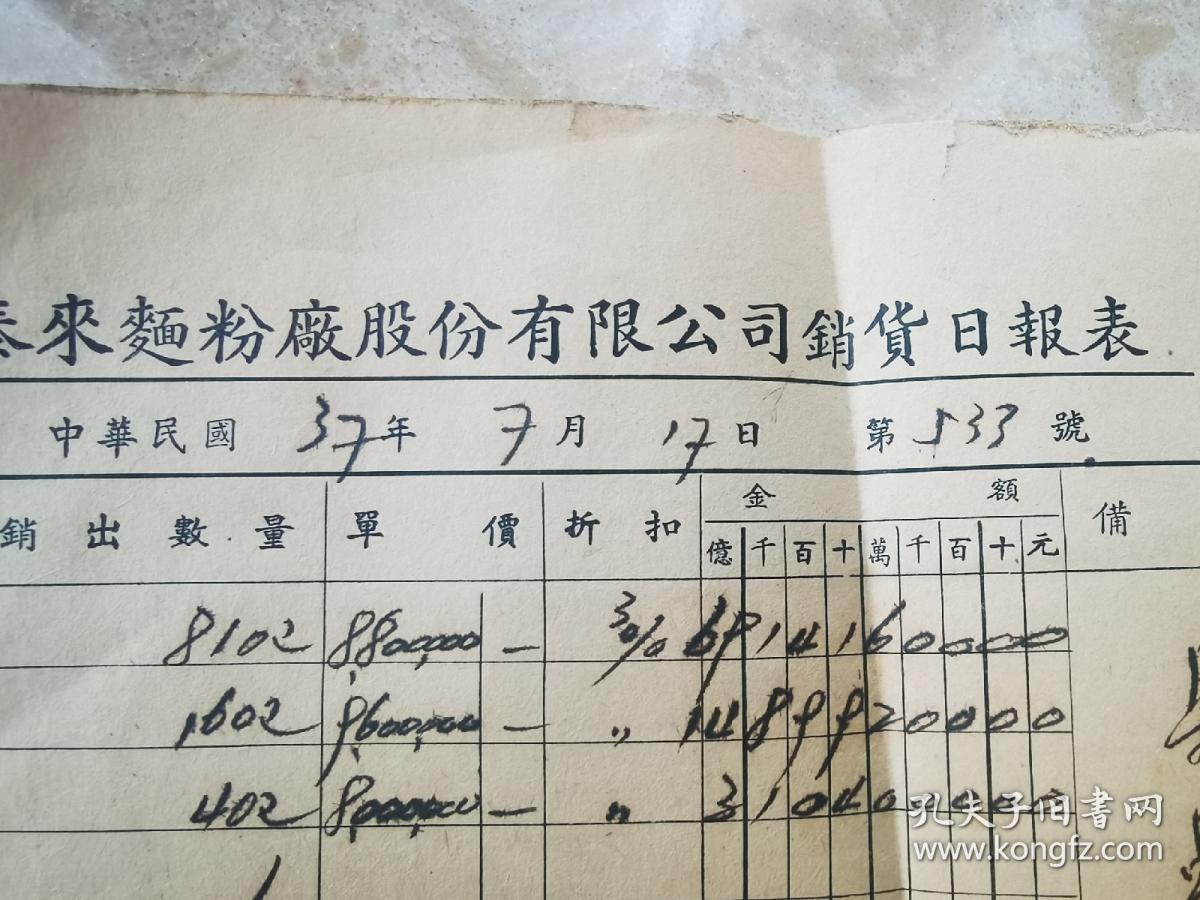 泰來麵粉廠股份有限公司銷貨日報表
中華民國 37年 7月 17日 第 533 號
銷出數量 單價 折扣 金額 備
億 千 百 十 萬 千 百 十 元
8102 8,800,000 — 3% 6914160000
1602 9,600,000 — 〃 1489920000
402 8,000,000 — 〃 310400000
孔夫子旧书网
www.kongfz.com